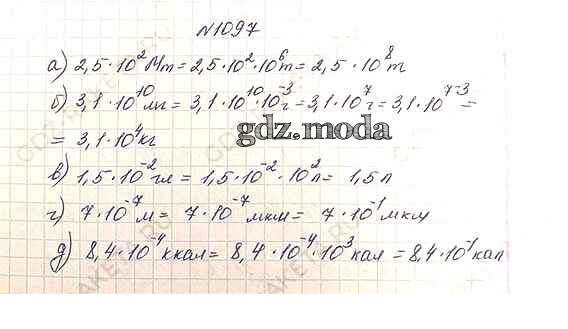 №1097
а) 2,5·10² Мт = 2,5·10²·10⁶т = 2,5·10⁸т
б) 3,1·10¹⁰ мг = 3,1·10¹⁰·10⁻³г = 3,1·10⁷г = 3,1·10⁷⁻³ =
= 3,1·10⁴кг
gdz.moda
в) 1,5·10⁻²гл = 1,5·10⁻²·10²л = 1,5л
г) 7·10⁻⁷м = 7·10⁻⁷мкм = 7·10⁻¹мкм
д) 8,4·10⁻⁴ккал = 8,4·10⁻⁴·10³кал = 8,4·10⁻¹кал